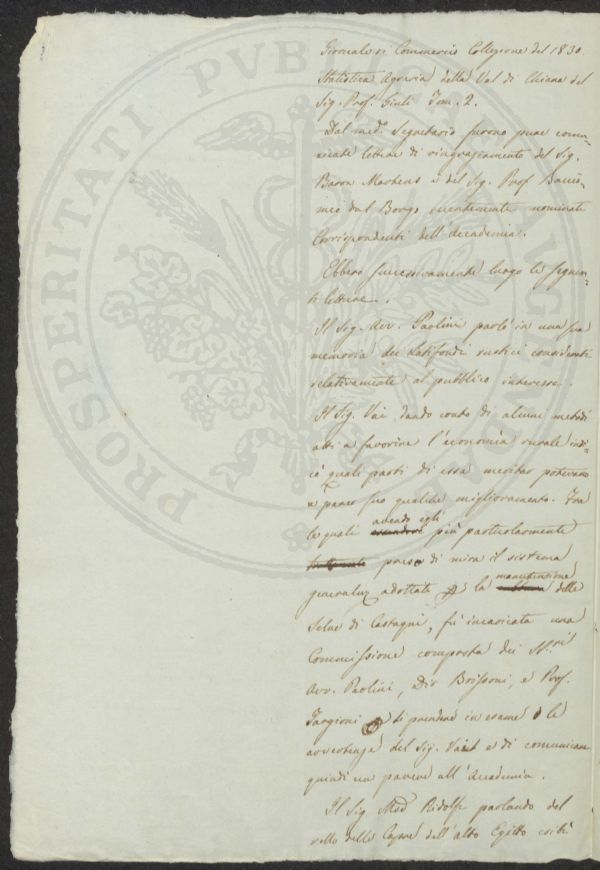 Giornale di Commercio Collezione del 1830.
Statistica Agraria della Val di Chiana del
Sig. Prof. Giuli Tom. 2.
Dal med.º Segretario furono pure comu-
nicate lettere di ringraziamento del Sig.
Baron Martens e del Sig. Prof
dal Borgo recentemente nominati
Corrispondenti dell'Accademia.
Ebbero successivamente luogo le seguen-
ti letture.
Il Sig. Avv. Paolini parlò in una sua
memoria dei Latifondi rustici considerati
relativamente al pubblico interesse.
Il Sig. Vai dando conto di alcuni metodi
atti a favorire l'economia rurale indi-
cò quali parti di essa meritar potevano
a parer suo qualche miglioramento. Fra
le quali avendo egli più particolarmente
preso di mira il sistema
generalm adottato la manutenzione delle
Selve di Castagni, fù incaricata una
Commissione composta dei SS.ri
Avv. Paolini, Dir , e Prof.
Targioni di prendere in esame le
avvertenze del Sig. Vai e di comunicare
quindi un parere all'Accademia.
Il Sig. Ridolfi parlando del
delle Capre dell'alto Egitto
PROSPERITATI PUBLICAE AUGENDAE